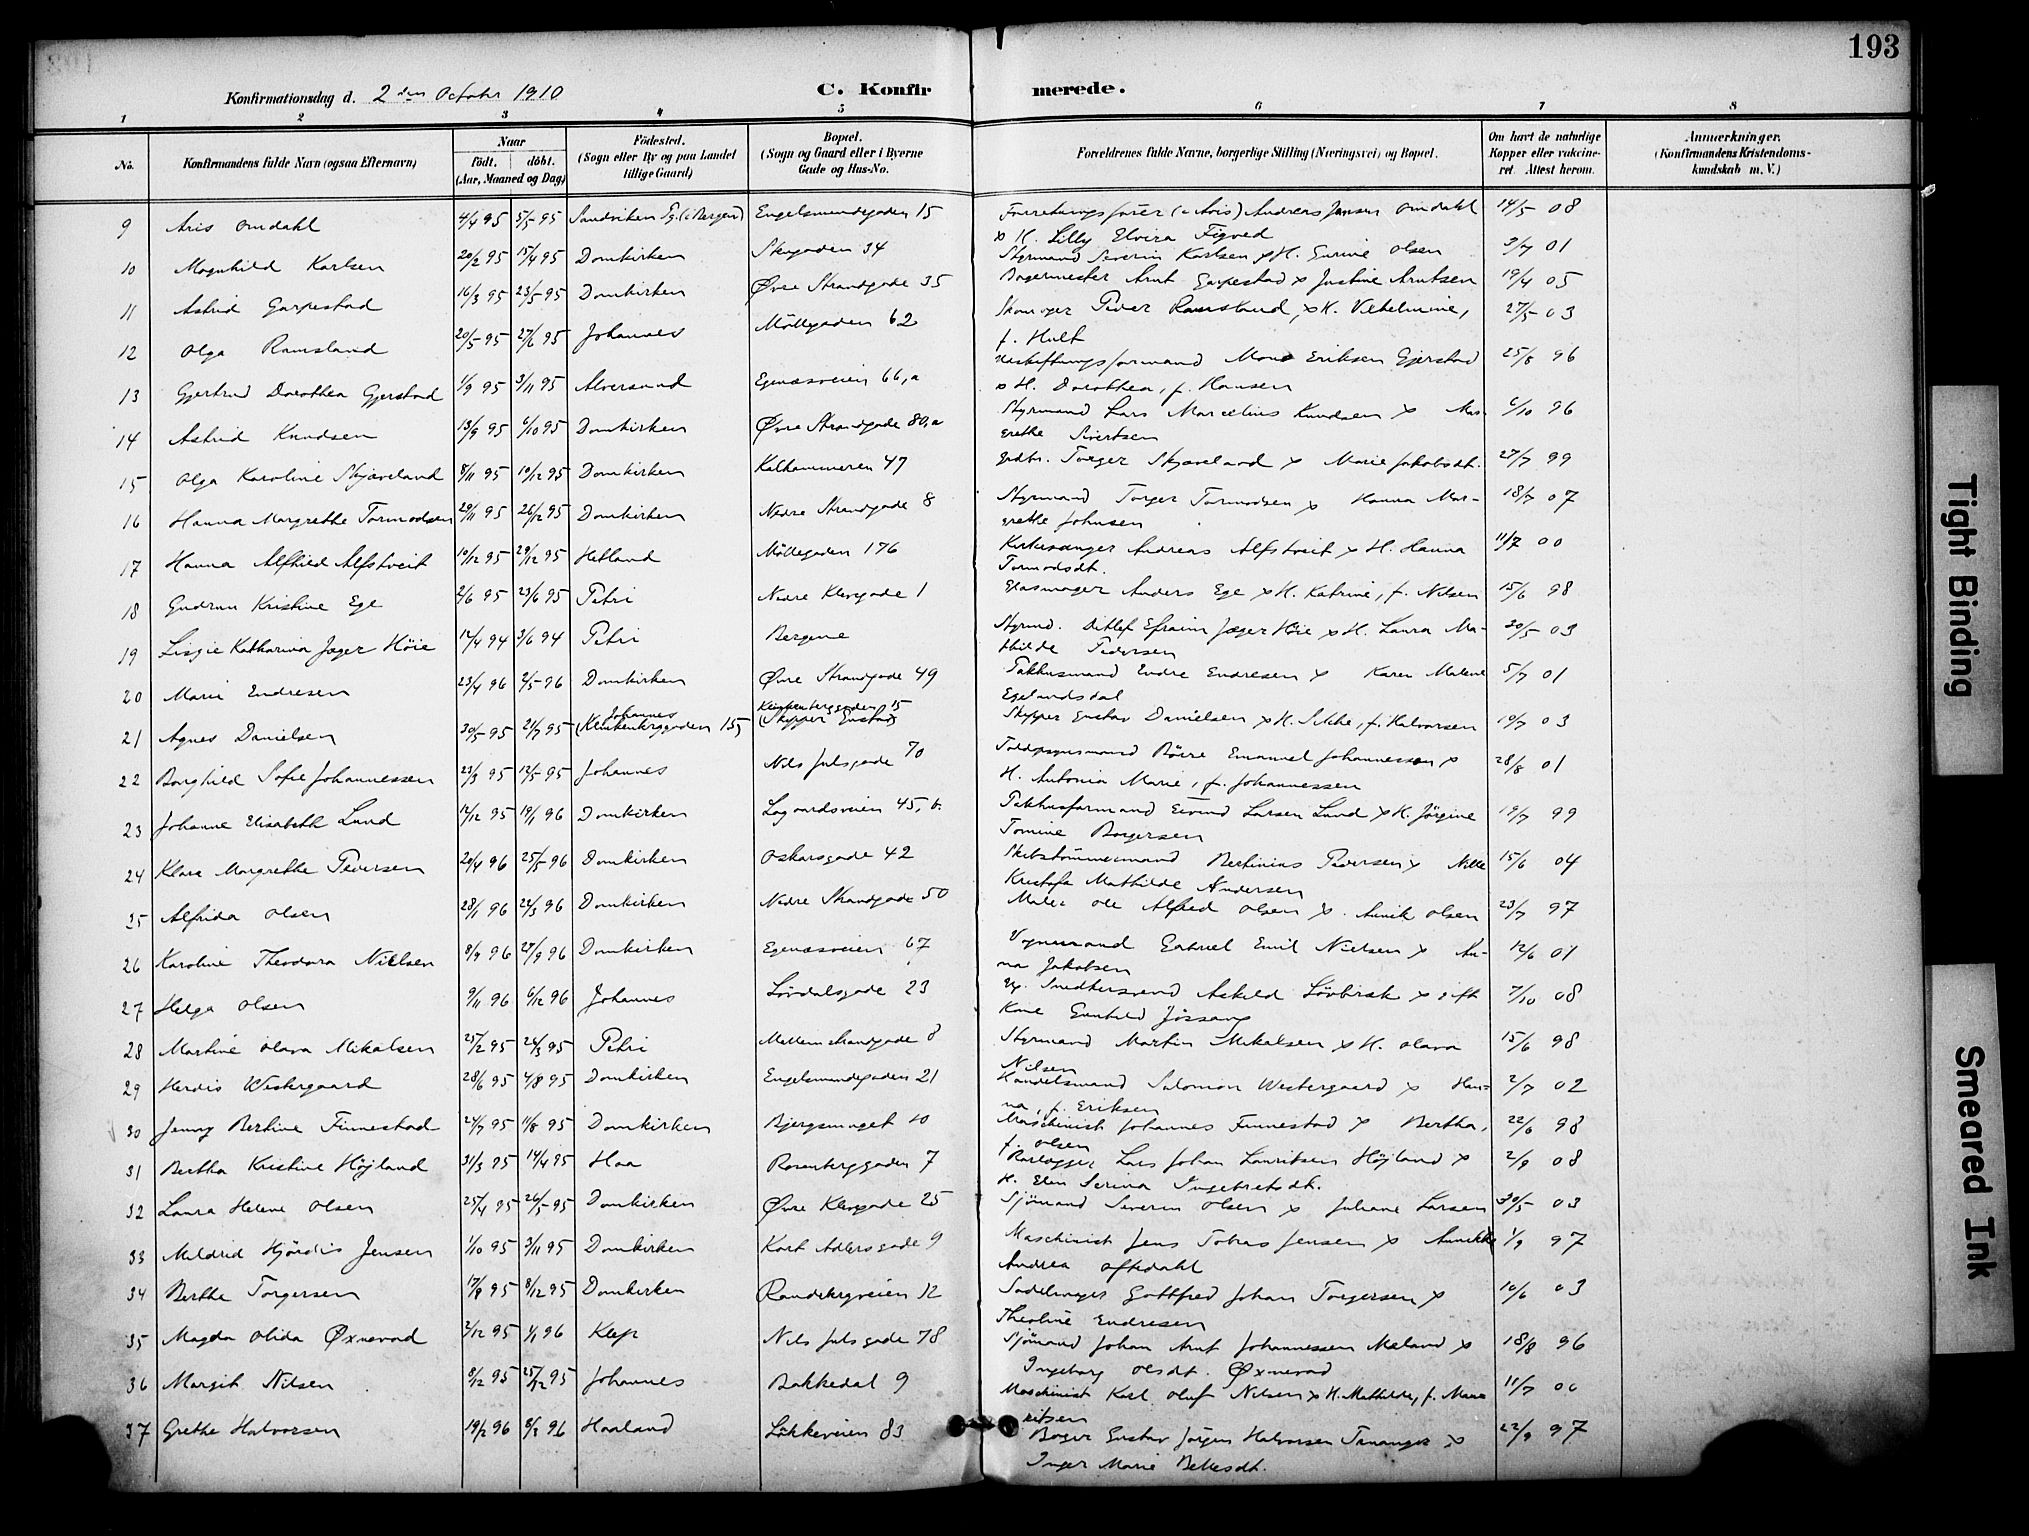 193
Konfirmationsdag d. 2den October 1910
C. Konfirmerede.
1 2 3 4 5 6 7 8
No. Konfirmandens fulde Navn (ogsaa Efternavn) Naar födt. döbt. (Aar, Maaned og Dag) Födested. (Sogn eller By og paa Landet tillige Gaard) Bopæl. (Sogn og Gaard eller i Byerne Gade og Hus-No. Forældrenes fulde Navne, borgerlige Stilling (Næringsvei) og Bopæl. Om havt de naturlige Kopper eller vakcineret. Attest herom. Anmærkninger. (Konfirmandens Kristendomskundskab m. V.)
9 Aris Omdahl 4/4 95 5/5 95 Sandviken Sg. (i Bergen) Engelsmindegaden 15 Forretningsfører (i Avis) Andreas Jensen Omdahl 14/5 08
x H. Lilly Elvira Figved
10 Magnhild Karlsen 20/2 95 15/4 95 Domkirken Skagaden 34 Styrmand Severin Karlsen x H. Gurine Olsen 3/7 01
11 Astrid Garpestad 16/3 95 23/5 95 Domkirken Øvre Strandgade 35 Bagermester Arnt Garpestad x Justine Arntsen 19/4 05
12 Olga Ramsland 20/5 95 27/6 95 Johannes Möllegaden 62 Skomager Peder Ramsland, x H. Vilhelmine, 27/5 03
f. Hult
13 Gjertrud Dorothea Gjerstad 1/9 95 3/11 95 Alversund Egenæsveien 66,a Mons Eriksen Gjerstad 25/8 96
x H. Dorothea, f. Hansen
14 Astrid Knudsen 13/9 95 6/10 95 Domkirken Øvre Strandgade 80,a Styrmand Lars Marcelius Knudsen x Mar- 6/10 96
grethe Sivertsen
15 Olga Karoline Skjæveland 8/11 95 10/12 95 Domkirken Kalhammeren 47 Grdbr. Torger Skjæveland x Marie Jakobsdt. 27/7 99
16 Hanna Margrethe Tormodsen 29/11 95 26/12 95 Domkirken Nedre Strandgade 8 Styrmand Torger Tormodsen x Hanna Mar- 18/7 07
grethe Johnsen
17 Hanna Alfhild Alfstveit 10/12 95 29/12 95 Hetland Möllegaden 176 Kirkesanger Andreas Alfstveit x H. Hanna 11/7 00
Tormodsdt.
18 Gudrun Kristine Ege 2/6 95 23/6 95 Petri Nedre Klevgade 1 Glasmager Anders Ege x H. Katrine, f. Nilsen 15/6 98
19 Katharina Jæger Höie 12/4 94 3/6 94 Petri Bergene Styrmd. Ditlef Efraim Jæger Höie x H. Laura Ma- 20/5 03
thilde Pedersen
20 Marie Endresen 23/4 96 2/5 96 Domkirken Øvre Strandgade 49 Pakhusmand Endre Endresen x Karen Malene 5/7 01
Egelandsdal
21 Agnes Danielsen 30/5 95 21/7 95 Johannes (Klinkenberggaden 15) Klinkenberggaden 15 (Skipper Gustav) Skipper Gustav Danielsen x H. Sikke, f. Halvorsen 19/7 03
22 Borghild Sofie Johannessen 23/3 95 12/5 95 Johannes Nils Juls gade 70 Toldopsynsmand Börre Emanuel Johannessen x 28/8 01
H. Antonia Marie, f. Johannessen
23 Johanne Elisabeth Lund 14/12 95 19/1 96 Domkirken Lagaardsveien 45, b. Pakhusformand Eivind Larsen Lund x H. Jörgine 19/7 99
Tomine Borgersen
24 Klara Margrethe Pedersen 20/4 96 25/5 96 Domkirken Oskarsgade 42 Skibstömmermand Bertinius Pedersen x Nille 15/6 04
Kristofa Mathilde Andersen
25 Alfrida Olsen 28/1 96 22/3 96 Domkirken Nedre Strandgade 50 Maler Ole Alfred Olsen x Annik Olsen 23/7 97
26 Karoline Theodora Nielsen 8/9 96 27/9 96 Domkirken Egenæsveien 67 Vognmand Gabriel Emil Nielsen x An- 12/6 01
na Jakobsen
27 Helga Olsen 9/11 96 6/12 96 Johannes Lövdalsgade 23 Snedkersvend Askild Lövbrek x gift 7/10 08
Kone Gunhild Jössang
28 Martine Olava Mikalsen 25/2 95 24/3 95 Petri Mellemstrandgade 8 Styrmand Martin Mikalsen x H. Olava 15/6 98
Nilsen
29 Herdis Westergaard 28/6 95 4/8 95 Domkirken Engelsmindegaden 21 Handelsmand Salomon Westergaard x Han- 2/7 02
na, f. Eriksen
30 Jenny Bertine Finnestad 24/7 95 11/8 95 Domkirken Bjergsmuget 10 Maschinist Johannes Finnestad x Bertha, 22/6 98
f. Olsen
31 Bertha Kristine Höjland 31/3 95 14/4 95 Haa Rosenberggaden 7 Lars Johan Lauritsen Höjland x 2/9 08
H. Elen Serina Ingebretsdt.
32 Laura Helene Olsen 25/4 95 26/5 95 Domkirken Øvre Klevgade 25 Sjömand Severin Olsen x Juliane Larsen 30/5 03
33 Mildrid Hjördis Jensen 1/10 95 3/11 95 Domkirken Kort Adlersgade 9 Maschinist Jens Tobias Jensen x Annikke 1/9 97
Andrea Oftedahl
34 Berthe Torgersen 17/9 95 8/12 95 Domkirken Randebergveien 12 Sadelmager Gottfred Johan Torgersen x 10/6 03
Theoline Endresen
35 Magda Olida Øxnevad 2/12 95 1/1 96 Klep Nils Juls gade 78 Sjömand Johan Arnt Johannessen Meland x 18/8 96
Ingeborg Olsdt. Øxnevad
36 Margit Nilsen 8/12 95 25/12 95 Johannes Bakkedal 9 Maschinist Karl Oluf Nilsen x H. Mathilde, f. Mau- 11/7 00
ritsen
37 Grethe Halvorsen 19/2 96 8/3 96 Haaland Lökkeveien 83 Bager Gustav Jörgen Halvorsen Tananger x 22/9 97
Inger Marie Bellesdt.
Tight Binding
Smeared Ink